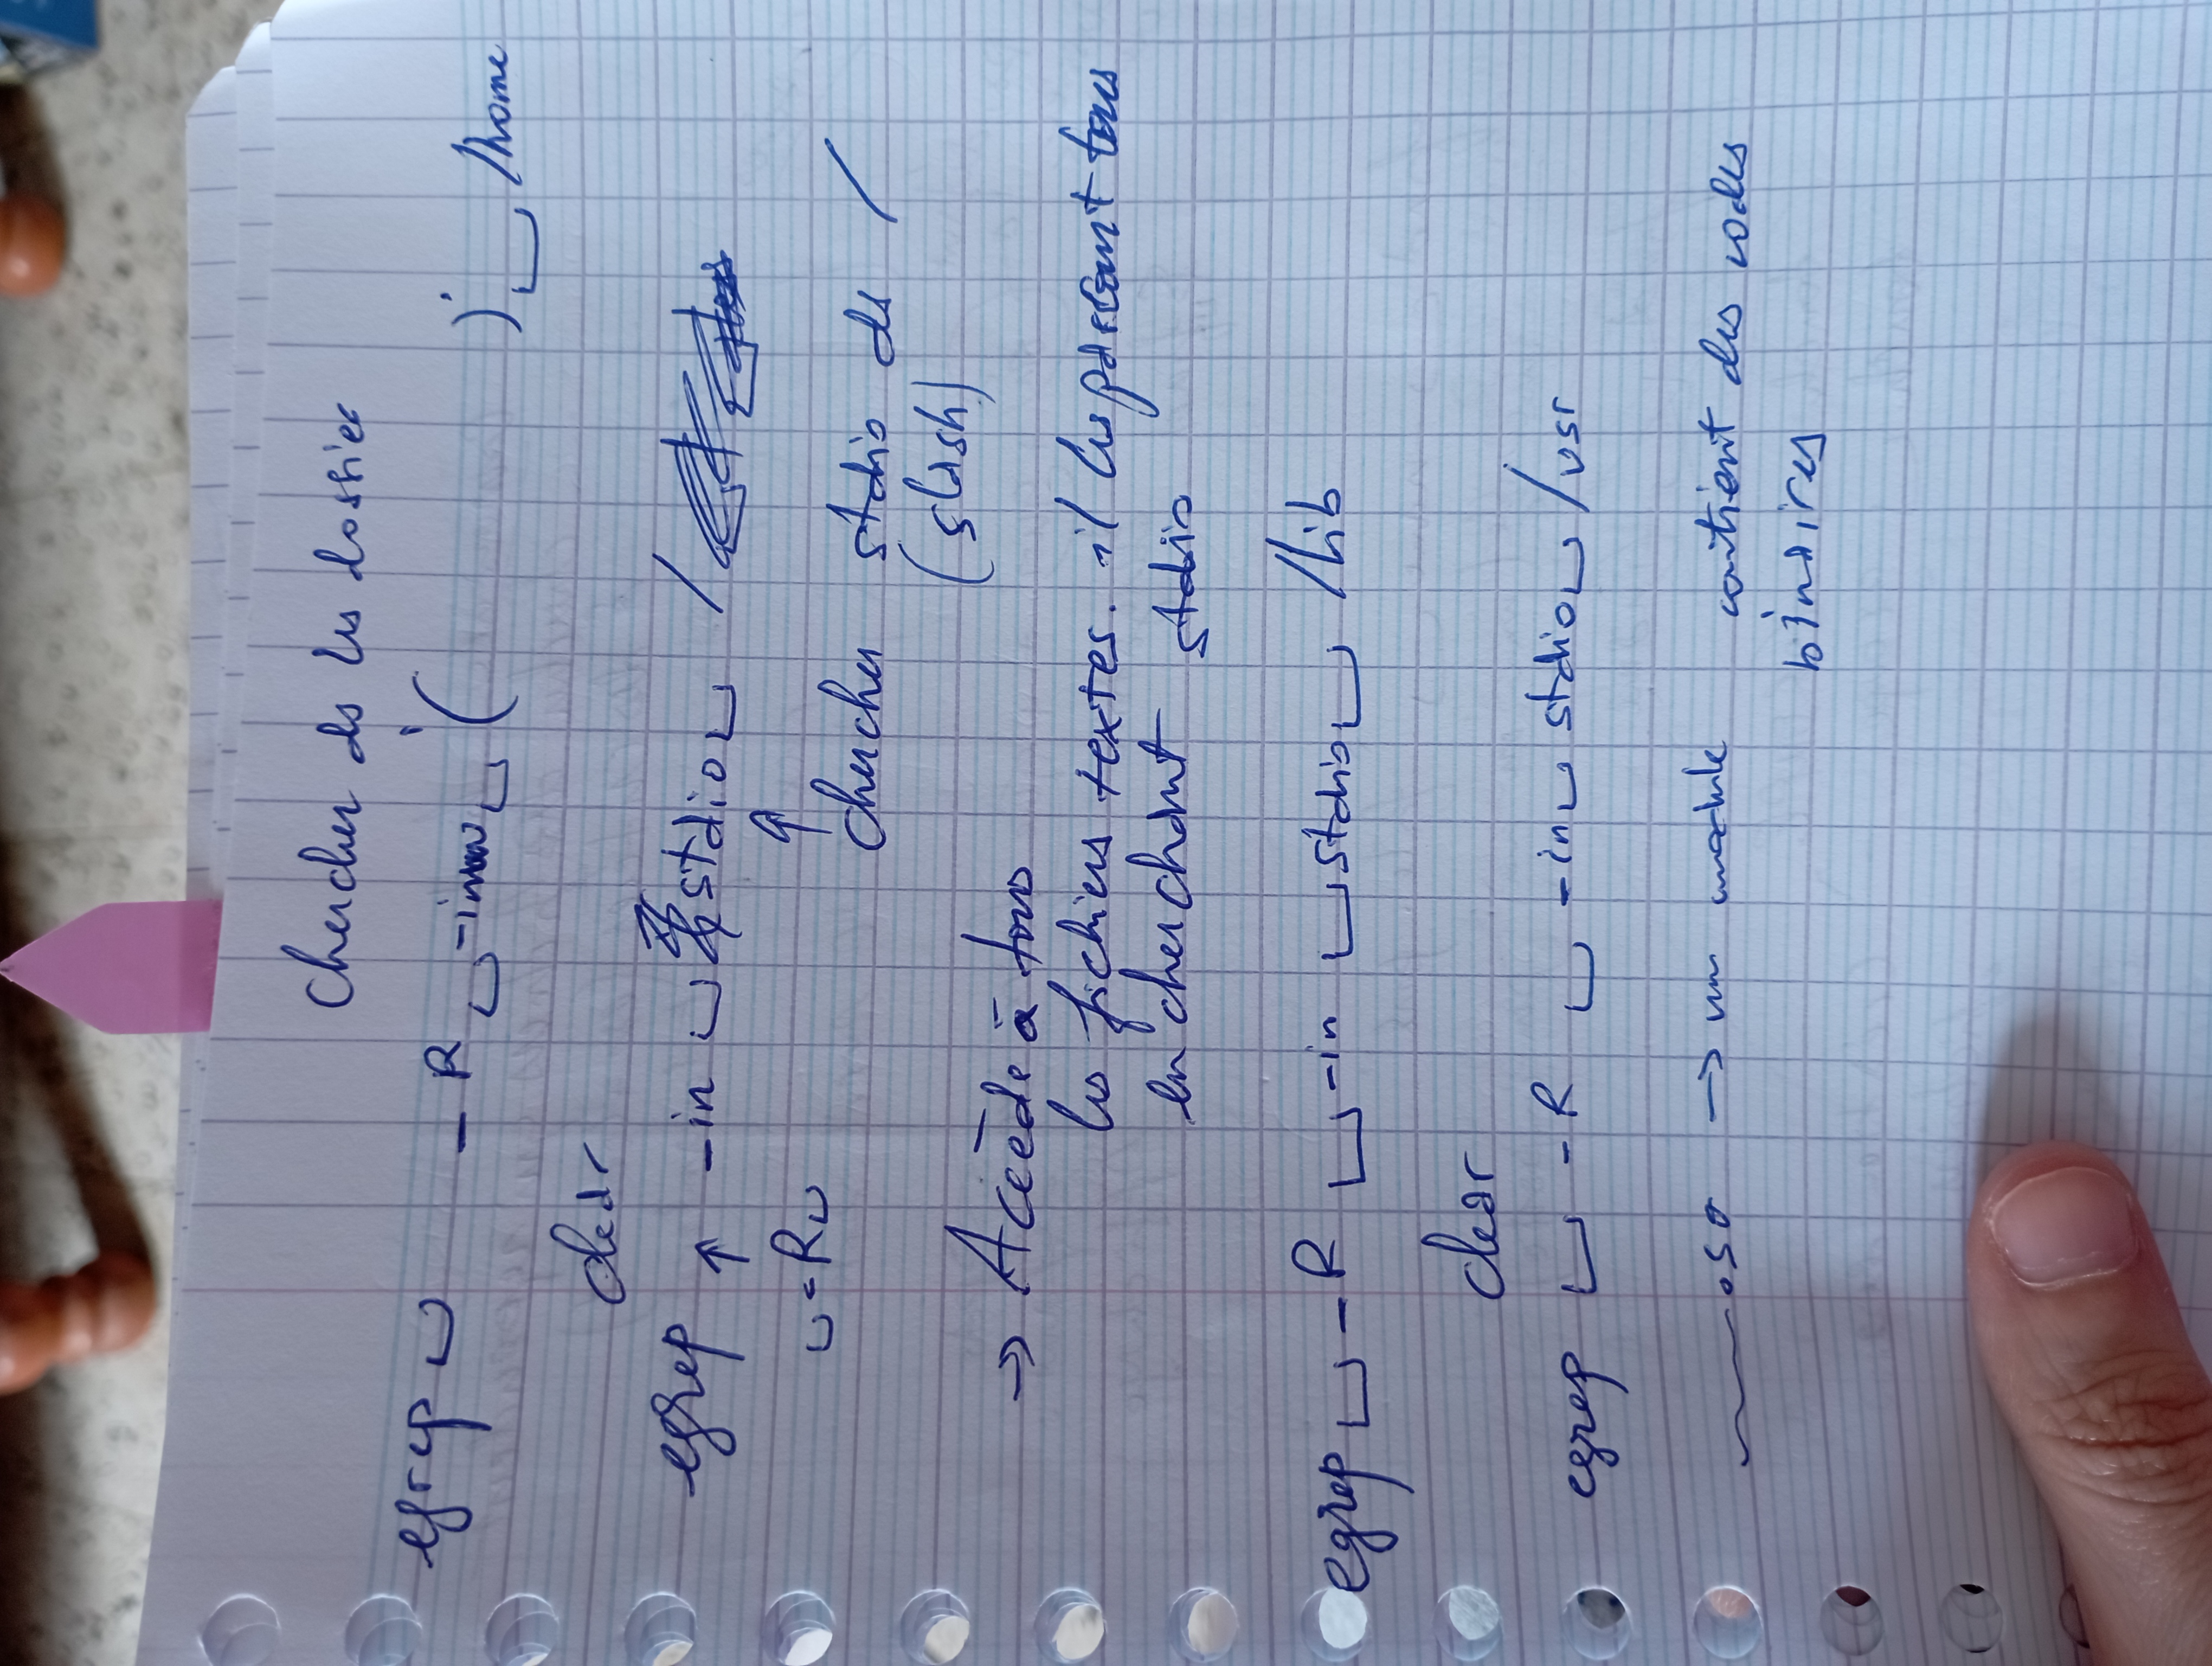 Chercher ds les dossier
egrep ␣ - R ␣ -in ␣ '( )' ␣ /home
clear
egrep ↑ -in ␣ stdio ␣ /
␣ -R ␣
↑
chercher stdio ds /
(slash)
→ Accède à tous
les fichiers textes. il les parcourt tous
en cherchant stdio
egrep ␣ - R ␣ -in ␣ stdio ␣ /lib
clear
egrep ␣ - R ␣ -in ␣ stdio ␣ /usr
.so → un module contient des codes
binaires